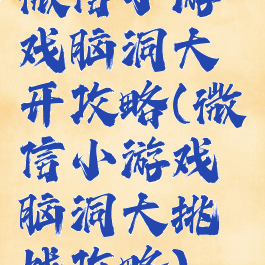 微信小游
戏脑洞大
开攻略(微
信小游戏
脑洞大挑
战攻略)